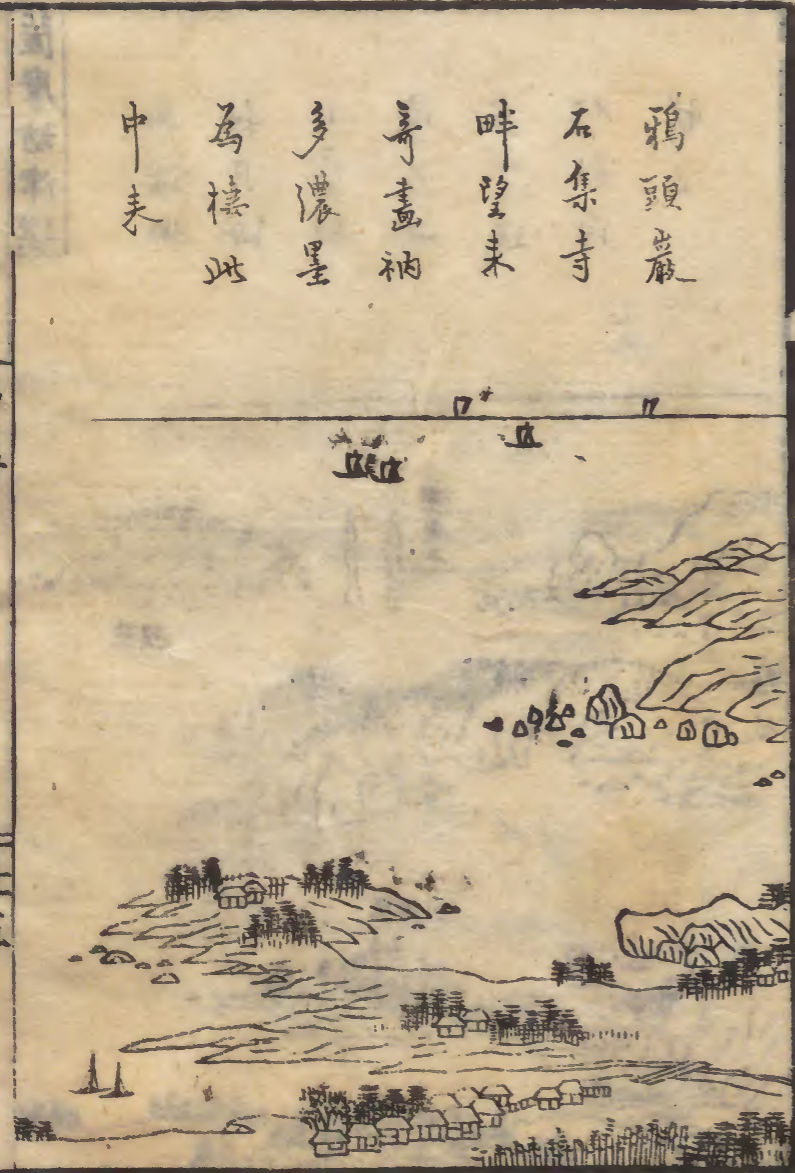 鴉頭巖
石集寺
畔望来
奇畫衲
多濃墨
為此
中表